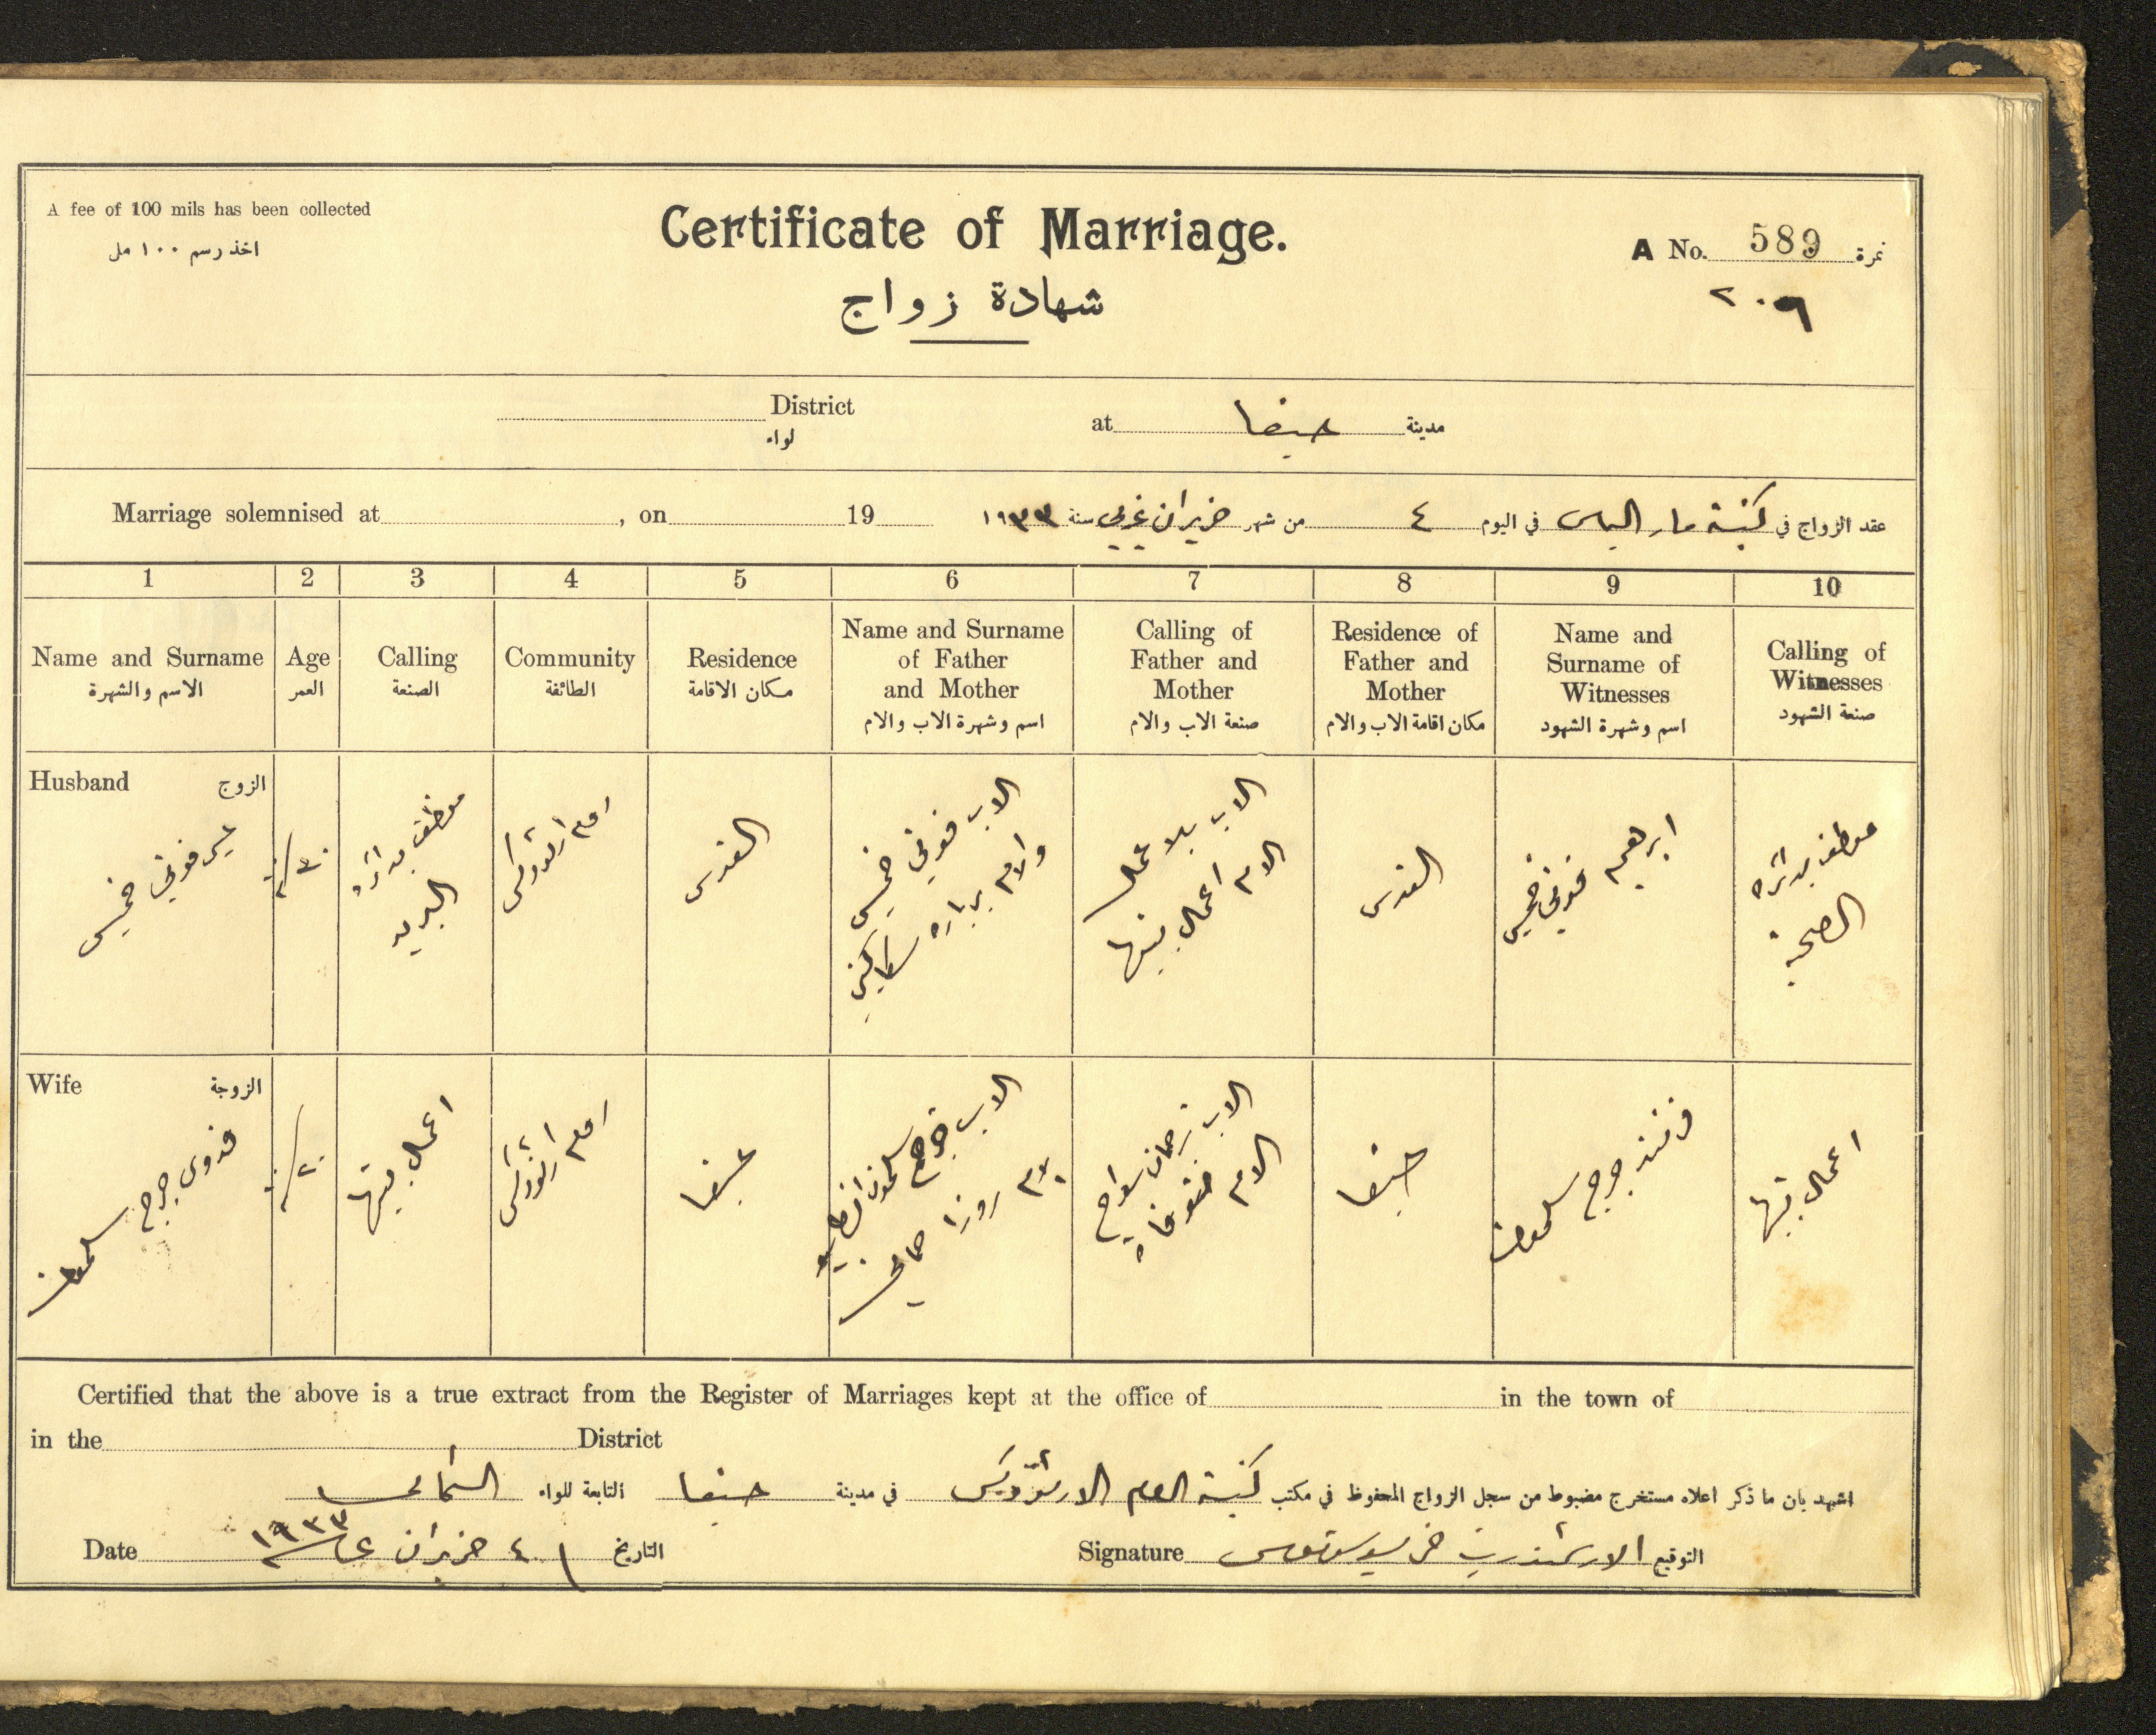 A fee of 100 mils has been collected
اخذ رسم ١٠٠ مل
Certificate of Marriage.
شهادة زواج
A No. 589 نمرة
٢٠٩
District
لواء
at حيفا مدينة
Marriage solemnised at , on 19
عقد الزواج في كنيسة مار الياس في اليوم ٤ من شهر حزيران غربي سنة ١٩٣٣
1 2 3 4 5 6 7 8 9 10
Name and Surname
الاسم والشهرة
Age
العمر
Calling
الصنعة
Community
الطائفة
Residence
مكان الاقامة
Name and Surname
of Father
and Mother
اسم وشهرة الاب والام
Calling of
Father and
Mother
صنعة الاب والام
Residence of
Father and
Mother
مكان اقامة الاب والام
Name and
Surname of
Witnesses
اسم وشهرة الشهود
Calling of
Witnesses
صنعة الشهود
Husband الزوج
خميس
موظف بدائرة
البريد
روم ارثوذكس
القدس
الاب خميس
والام بربارة
الاب بلا عمل
الام اعمال بيتها
القدس
ابرهيم خميس
موظف بدائرة
الصحة
Wife الزوجة
فدوى جرجي سلمون
اعمال بيتها
روم ارثوذكس
حيفا
الاب جرجي سلمون
والام روزا
الاب ترجمان سواح
الام متوفاة
حيفا
جرجي سلمون
اعمال بيتها
Certified that the above is a true extract from the Register of Marriages kept at the office of in the town of
in the District
اشهد بان ما ذكر اعلاه مستخرج مضبوط من سجل الزواج المحفوظ في مكتب كنيسة الروم الارثوذكس في مدينة حيفا التابعة للواء الشمالي
Date ٤ حزيران ١٩٣٣ التاريخ
Signature الارشمندريت التوقيع